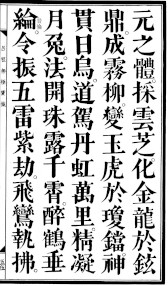 元之體探雲芝化金龍於鉉
鼎成霧柳變玉虎於瓊鐺神
貫日烏道駕丹虹萬里精凝
月兔法開珠露千霄醉鶴垂
綸令振五雷紫劫飛鸞執拂